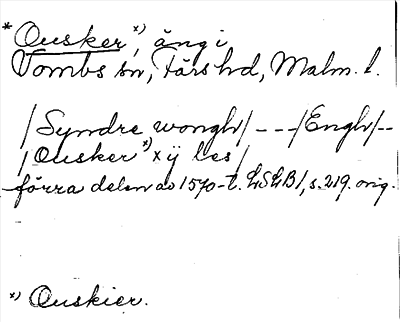 * Ousker x), äng i
Tombs sn, Färs hd, Malm. l.
/Syndre wongh/ - - -/Engh/--
/Ousker x) x ÿ les/
förra delen av 1570-t. LSLB1, s. 219. orig.
x) Ouskier.